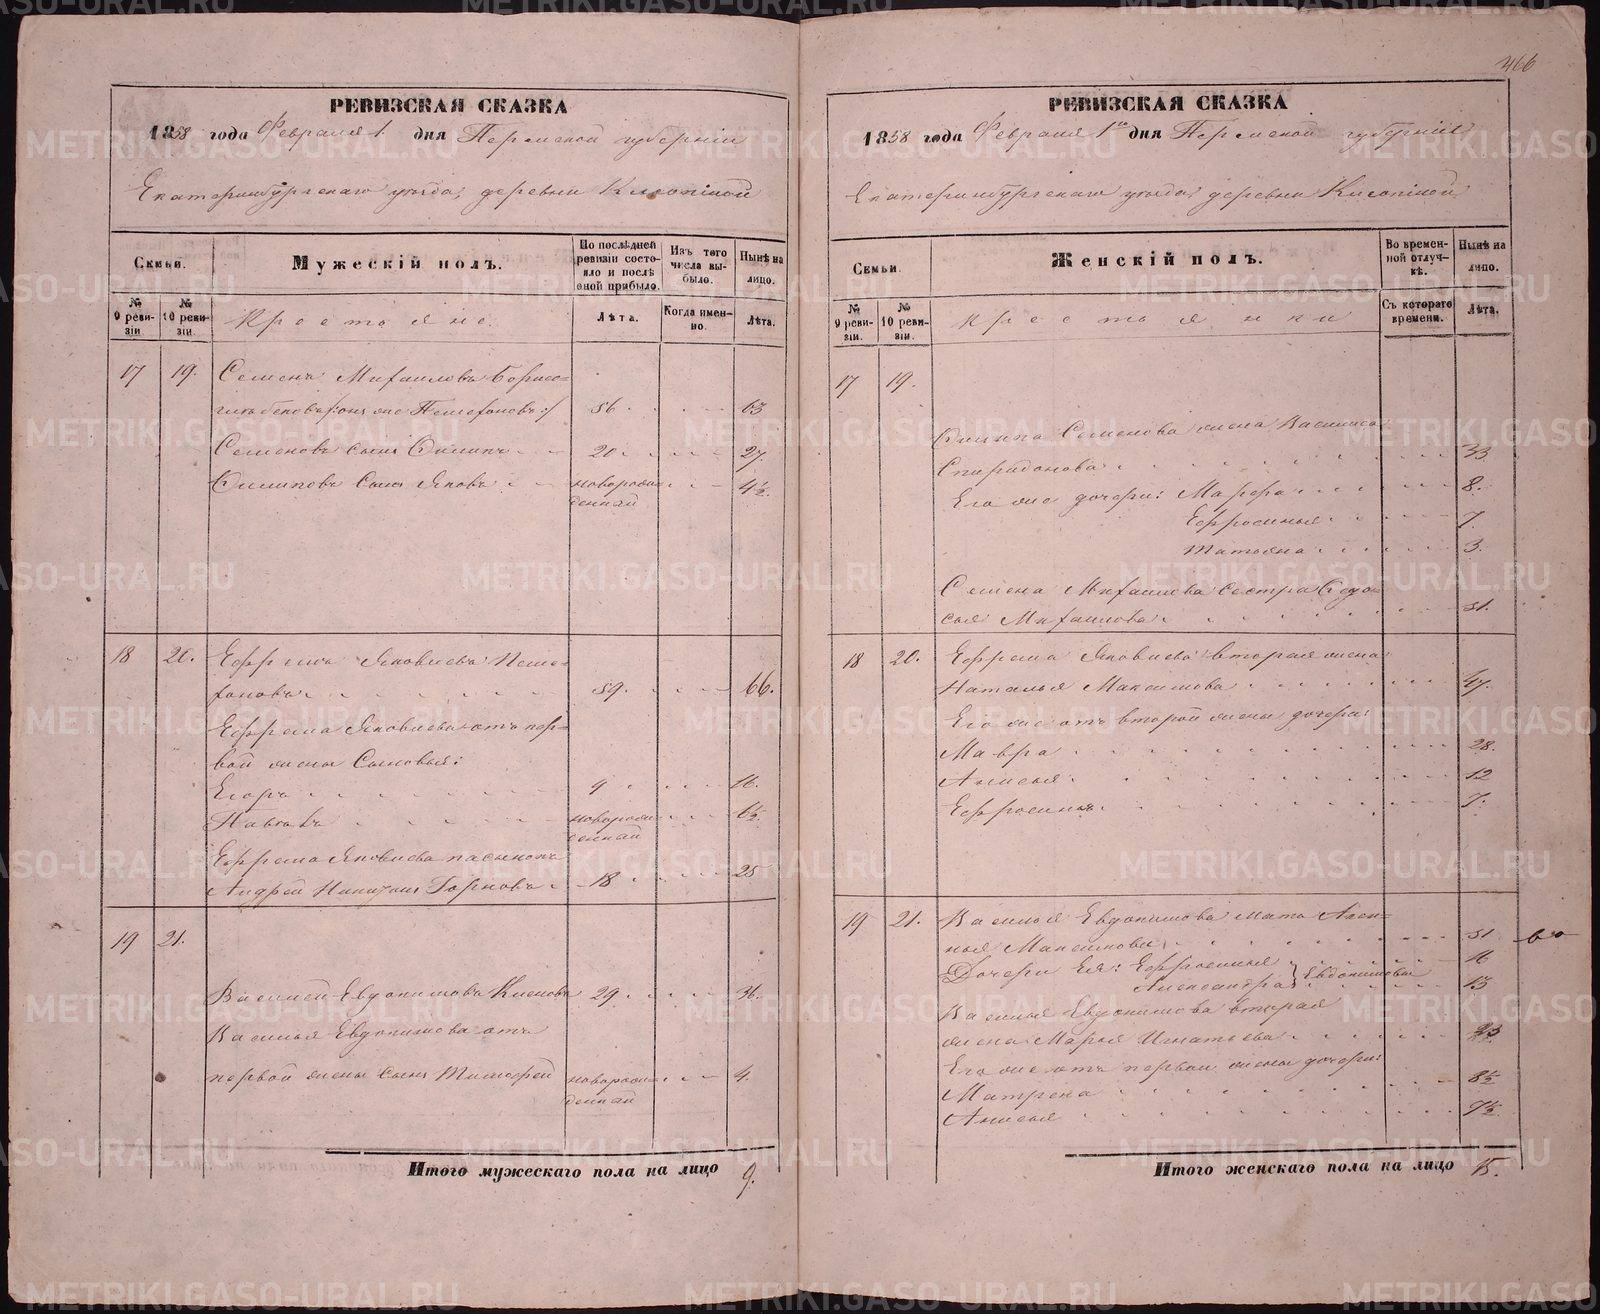 466
РЕВИЗСКАЯ СКАЗКА
1858 года Февраля 1. дня Пермской губернiи
Екатеринбургскаго уѣзда, деревни
Семьи.
Мужескiй полъ.
По послѣдней ревизiи состояло и послѣ оной прибыло.
Изъ того числа выбыло.
Нынѣ на лицо.
№ 9 ревизiи
№ 10 ревизiи.
Крестьяне.
Лѣта.
Когда именно.
Лѣта.
17 19. Семенъ Михаиловъ
56. 63
Семеновъ сынъ Филипъ 20 27.
Филиповъ сынъ Яковъ новорож- 4½.
денный
18 20. Ефремъ Яковлевъ
59. 66.
Ефрема Яковлева отъ пер-
вой жены сыновья:
Егоръ 9 16.
новорож- 6½.
денный
Ефрема Яковлева пасынокъ
Андрей 18 25
19 21.
Василей Евдокимовъ 29. 36.
Василья Евдокимова отъ
первой жены сынъ Тимофей новорож- 4.
денный
Итого мужескаго пола на лицо 9.
РЕВИЗСКАЯ СКАЗКА
1858 года Февраля 1го дня Пермской губернiи
Екатеринбургскаго уѣзда, деревни
Семьи.
Женскiй полъ.
Во временной отлучкѣ.
Нынѣ на лицо.
№ 9 ревизiи.
№ 10 ревизiи.
Крестьянки
Съ котораго времени.
Лѣта.
17 19.
Филипа Семенова жена Василиса
Спиридонова 33
Его же дочери: Марфа 8.
Ефросинья 7.
Татьяна 3.
Семена Михаилова сестра Федо-
сья Михаилова 51.
18 20. Ефрема Яковлева вторая жена
Наталья Максимова 47.
Его же отъ второй жены дочери:
Мавра 28.
Анисья 12
Ефросинья 7.
19 21. Василья Евдокимова мать
Максимова 51
Дочери Ея: Ефросинья 16
Александра Евдокимовы 13
Василья Евдокимова вторая
жена Марья Игнатьева
Его же отъ первой жены дочери:
Матрена 8½
Анисья
Итого женскаго пола на лицо 15.
METRIKI.GASO-URAL.RU